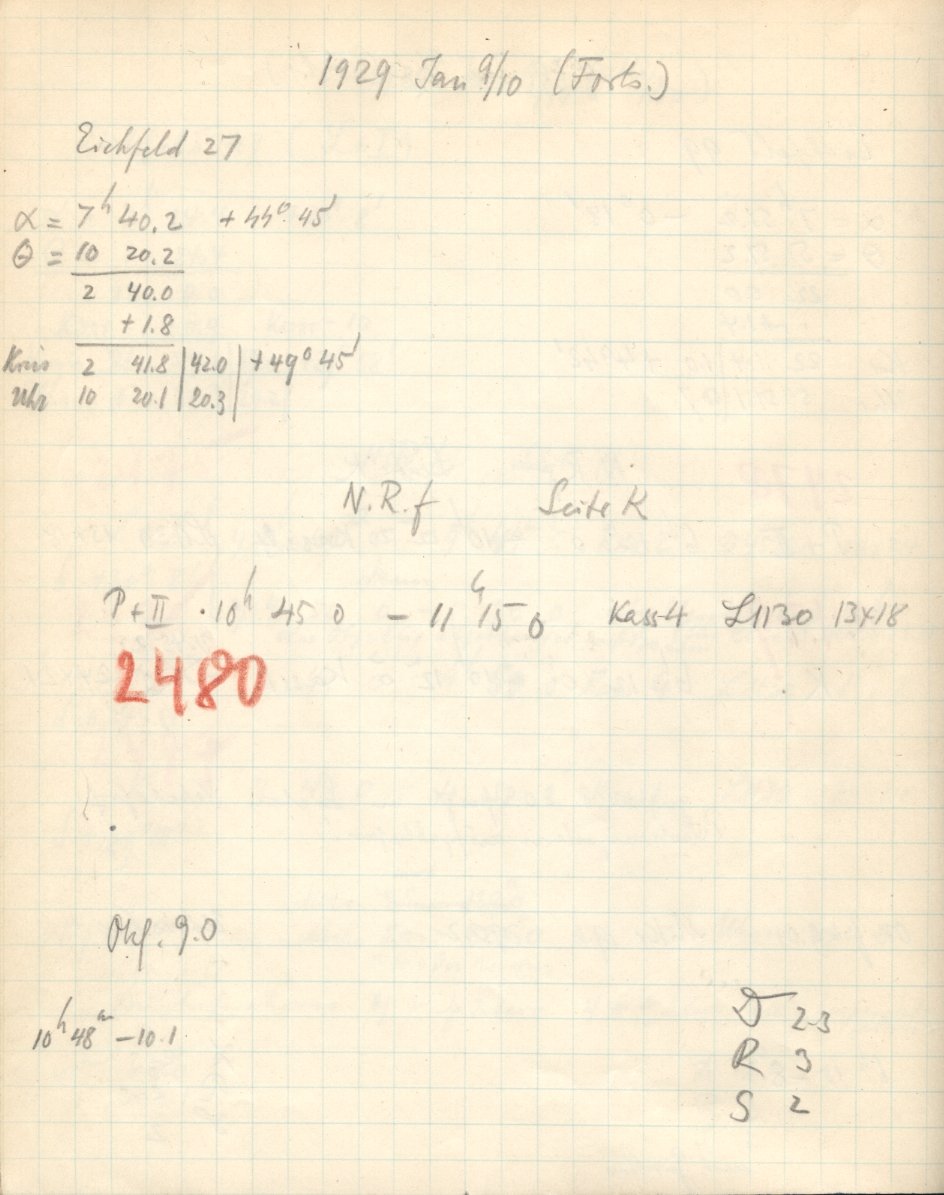 1929 Jan 9/10 (Forts.)
Eichfeld 27
α = 7h 40.2 +44° 45'
Θ = 10 20.2
2 40.0
+1.8
Kreis 2 41.8 | 42.0 | +49° 45'
Uhr 10 20.1 | 20.3 |
N.R.f Seite K
P+II · 10h 45 0 – 11h 15 0 Kass 4 L1130 13×18
2480
Okf. 9.0
10h 48m –10.1
D 2-3
R 3
S 2